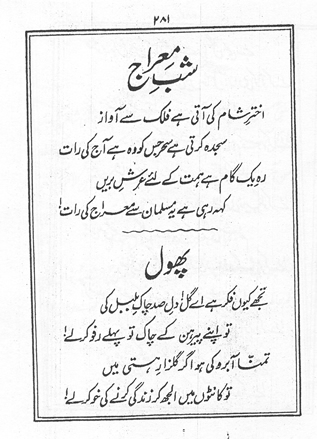 ۲۸۱
شبِ معراج
اخترِ شام کی آتی ہے فلک سے آواز
سجدہ کرتی ہے سحر جس کو وہ ہے آج کی رات
رہِ یک گام ہے ہمت کے لئے عرشِ بریں
کہہ رہی ہے یہ مسلمان سے معراج کی رات!
پھول
تجھے کیوں فکر ہے اے گل! دلِ صد چاکِ بلبل کی
تو اپنے پیرہن کے چاک تو پہلے رفو کر لے!
تمنّا آبرو کی ہو اگر گلزارِ ہستی میں
تو کانٹوں میں الجھ کر زندگی کرنے کی خو کر لے!